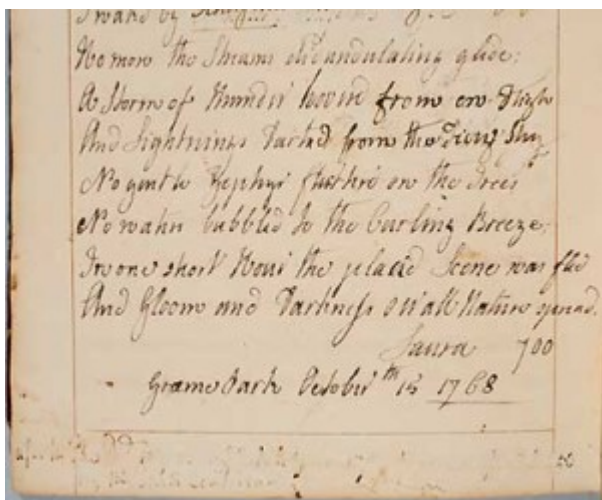 No more the Streams did undulating glide:
A Storm of Thunder hover'd from on High
And Lightnings Darted from the Fiery Sky
No gentle Zephyr flutter'd on the Trees
No water bubbled to the Curling Breeze:
In one short Hour the placid Scene was fled
And Gloom and Darkness o'er all Nature spread.
Laura 700
Græme Park October 15th 1768